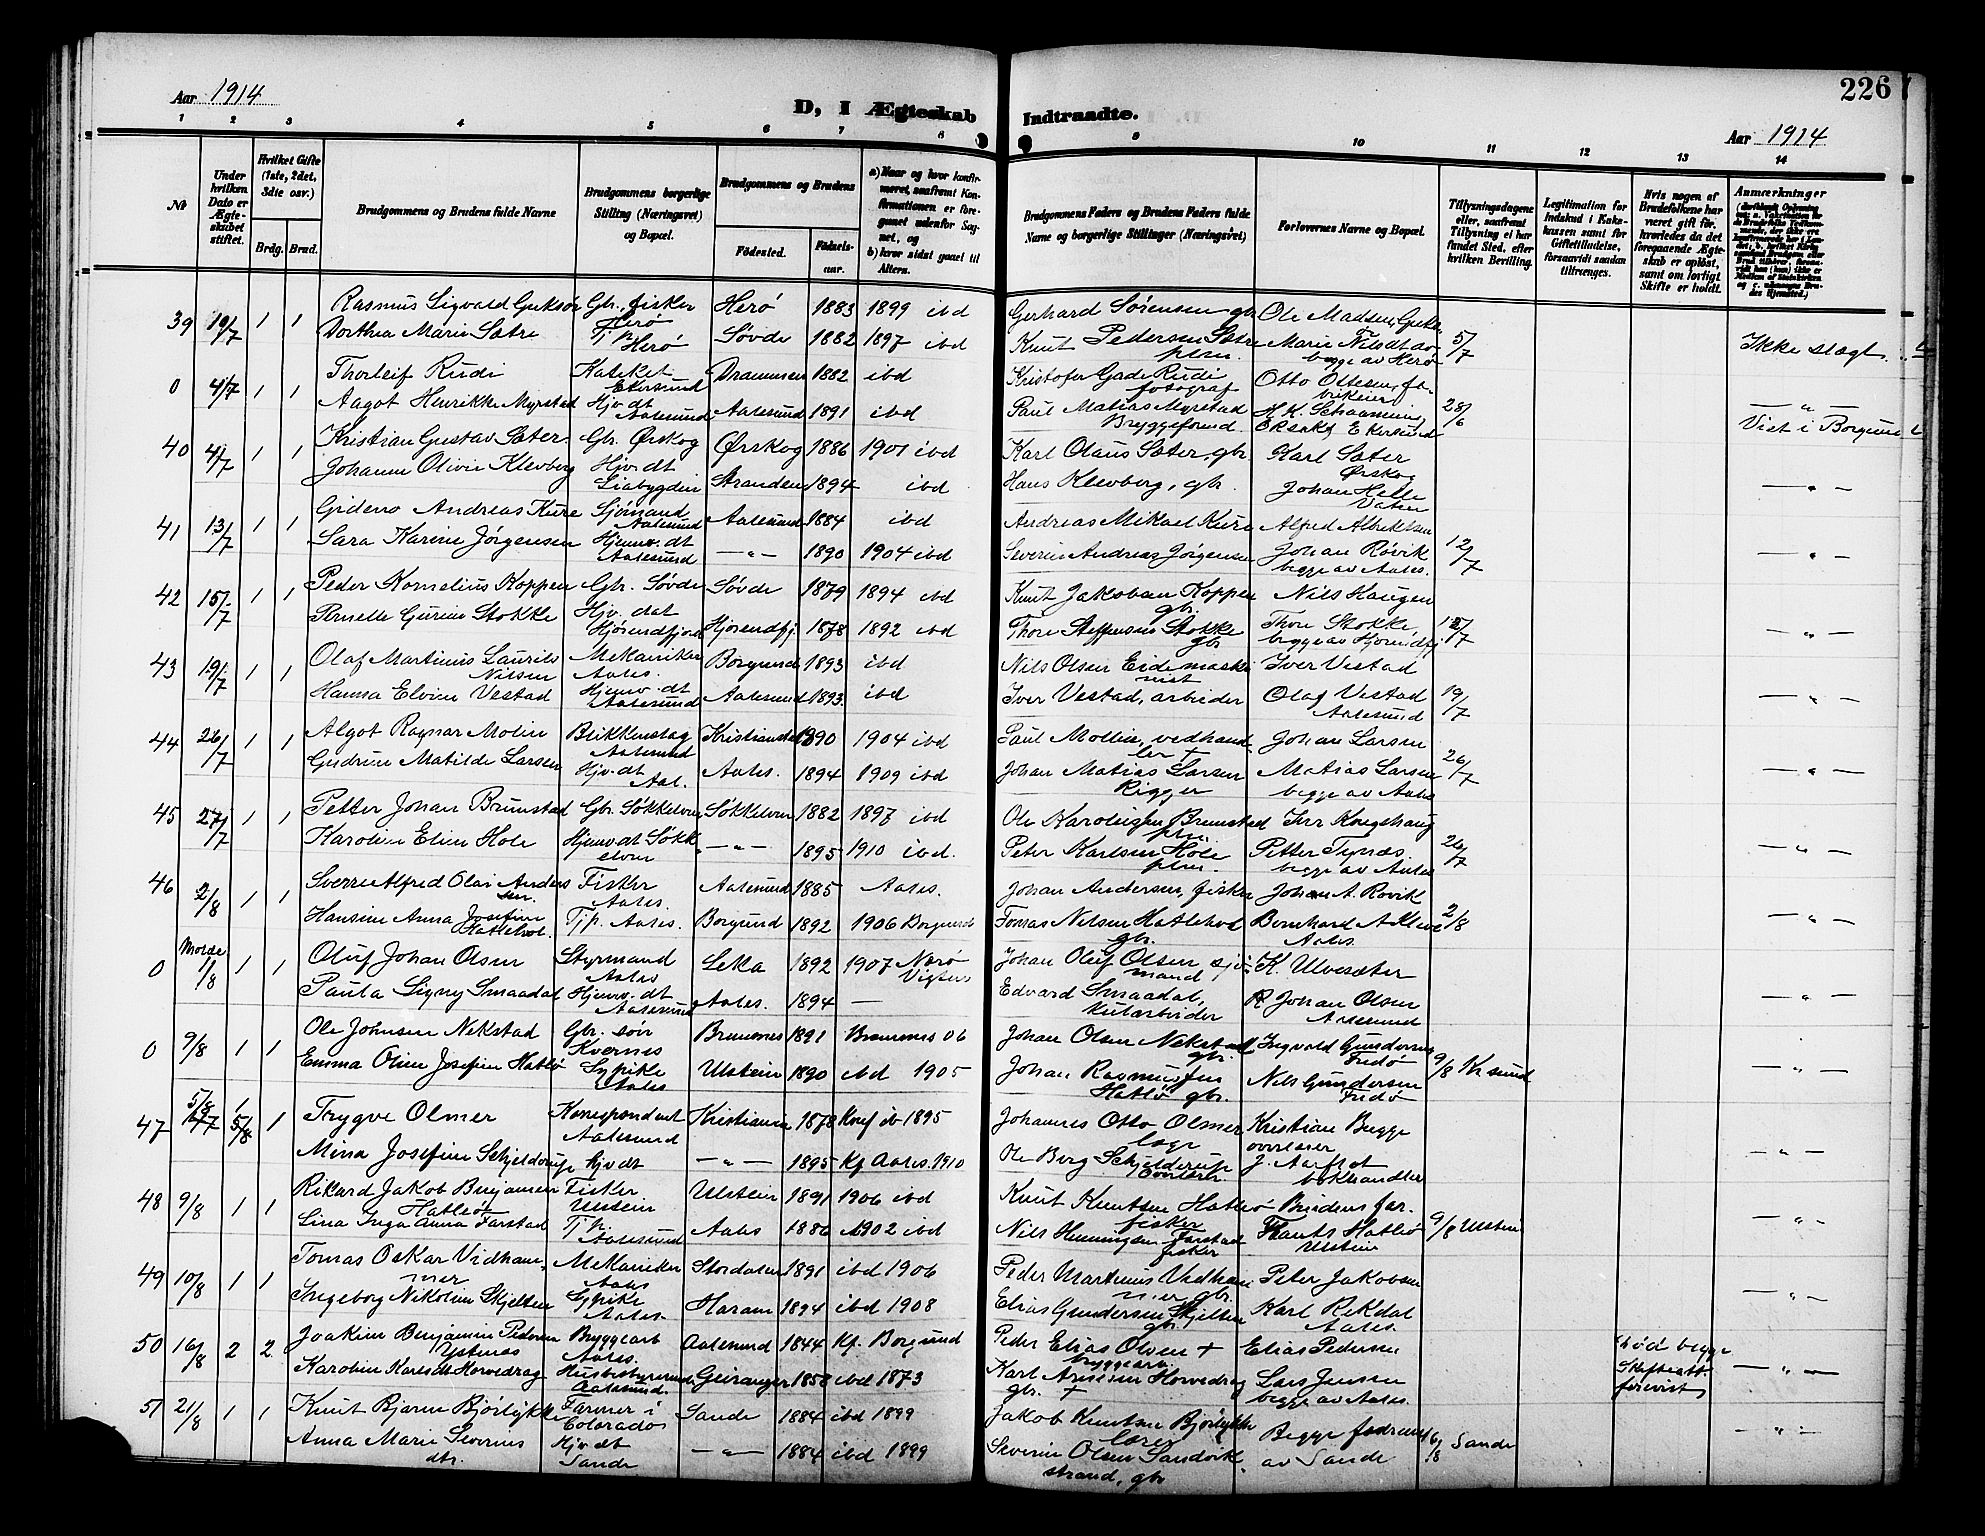 226
Aar 1914
D, I Ægteskab Indtraadte.
Aar 1914
1 2 3 4 5 6 7 8 9 10 11 12 13 14
№
Under hvilken Dato er Ægteskabet stiftet.
Hvilket Gifte (1ste, 2det, 3die osv.)
Brdg. Brud.
Brudgommens og Brudens fulde Navne
Brudgommens borgerlige Stilling (Næringsvei) og Bopæl.
Brudgommens og Brudens
Fødested. Fødselsaar.
a) Naar og hvor konfirmeret, saafremt Konfirmationen er foregaaet udenfor Sognet, og
b) hvor sidst gaaet til Alters.
Brudgommens Faders og Brudens Faders fulde Navne og borgerlige Stillinger (Næringsvei)
Forlovernes Navne og Bopæl.
Tillysningsdagene eller, saafremt Tillysning ei har fundet Sted, efter hvilken Bevilling.
Legitimation for Indskud i Enkekassen samt for Giftetilladelse, forsaavidt saadan tiltrænges.
Hvis nogen af Brudefolkene har været gift før, hvorledes da det foregaaende Ægteskab er opløst, samt om lovligt Skifte er holdt.
Anmærkninger
39 19/7 1 1 Rasmus Sigvald Gjertsen Gbr. fisker Herø Herø 1883 1899 ibd Gerhard Sørensen gbr Ole Madsen
Dorthea Marie Sætre Tj.p. Herø Søvde 1882 1897 ibd Knut Pedersen Sætre plsm. Marie Nilsdt begge av Herø 5/7 Ikke slegt
0 4/7 1 1 Thorleif Rudi Kateket Ekersund Drammen 1882 ibd Kristofer Gade Rudi fotograf Otto Ottesen, fabrikeier
Aagot Henrikke Myrstad Hjv. dt Aalesund Aalesund 1891 ibd Paul Matias Myrstad Bryggeformd Ekersund 28/6 — " —
Viet i Borgund
40 4/7 1 1 Kristian Gustav Sæter Gbr. Ørskog Ørskog 1886 1901 ibd Karl Olaus Sæter, gbr Karl Sæter Ørskog
Johanne Olivie Klevberg Hjv. dt Liabygden Stranden 1894 ibd Hans Klevberg, gbr. Johan Helle Vatne — " —
41 13/7 1 1 Gideon Andreas Kure Sjømand Aalesund Aalesund 1884 ibd Andreas Mikael Kure Alfred Albrektsen
Sara Karine Jørgensen Hjemv. dt Aalesund — " — 1890 1904 ibd Severin Andreas Jørgensen Johan Røvik begge av Aales. 12/7 — " —
42 15/7 1 1 Peder Kornelius Koppen Gbr. Søvde Søvde 1879 1894 ibd Knut Jakobsen Koppen gbr. Nils Haugen
Pernelle Gurine Stokke Hjv. dat Hjørendfjord Hjørendfj. 1878 1892 ibd Thore Steffensen Stokke gbr Thor Stokke begge av Hjørendfj 12/7 — " —
43 19/7 1 1 Olaf Martinus Laurits Nilsen Mekaniker Aales. Borgund 1893 ibd Nils Olsen Eide maskinist Iver Vestad
Hanna Elvine Vestad Hjemv. dt Aalesund Aalesund 1893. ibd Iver Vestad, arbeider Olaf Vestad Aalesund 19/7 — " —
44 26/7 1 1 Algot Ragnar Molin Blikkenslag Aalesund Kristianstad 1890 1904 ibd Paul Mollin, vedhandler + Johan Larsen
Gudrun Matilde Larsen Hjv. dt Aal. Aales. 1894 1909 ibd Johan Matias Larsen Rigger Matias Larsen begge av Aales 26/7 — " —
45 27/7 1 1 Petter Johan Brunstad Gbr. Søkkelven Søkkelven 1882 1897 ibd Ole Karolusen Brunstad plsm. Iver Kongshaug
Karoline Eline Hole Hjemv dt Søkkelven — " — 1895 1910 ibd. Peter Karlsen Hole plsm. Petter Tynæs begge av Aales 26/7 — " —
46 2/8 1 1 Sverre Alfred Olai Andersen. Fisker Aales. Aalesund 1885 Aales. Johan Andersen, fisker Johan A. Røvik
Hansine Anna Josefine Hatlehol. Tjp. Aales. Borgund 1892 1906 Borgund Tomas Nilsen Hatlehol gbr. Bernhard A. Kleive Aales. 2/8 — " —
0 Molde 1/8 1 1 Oluf Johan Olsen Styrmand Aales Leka 1892 1907 Nærø Vigten Johan Oluf Olsen sjømand K. Ulvesæter
Paula Signy Smaadal Hjemv. dt Aalesund Aales. 1894 — Edvard Smaadal, kularbeider Johan Olsen Aalesund — " —
0 9/8 1 1 Ole Johnsen Nekstad Gbr. søn Kvernes Bremsnes 1891 Bremsnes 06 Johan Olsen Nekstad gbr. Ingvald Gundersen Fredø
Emma Oline Josefine Hatlø Sypike Aales Ulstein 1890 ibd 1905 Johan Rasmussen Hatlø gbr. Nils Gundersen Fredø 9/8 Kr sund — " —
47 5/8 1 1 Trygve Olmer Korrespondent Aalesund Kristiania 1878 Konf ib 1895 Johannes Otto Olmer læge Kristian Bugge overlærer
Mina Josefine Schjelderup Hjv dt — " — 1895 Kf Aales. 1910 Ole Berg Schjelderup Overlærer J. Aarflot bokhandler — " —
48 9/8 1 1 Rikard Jakob Benjamin Hatlø Fisker Ulstein Ulstein 1891 1906 ibd Knut Knutsen Hatlø fisker Brudens far.
Lina Inga Anna Farstad Tj p. Aalesund Aales 1886 1902 ibd Nils Henningsen Farstad fisker Knut Hatlø Ulstein 9/8 Ulstein — " —
49 10/8 1 1 Tomas Oskar Vidhammer Mekaniker Aales Stordalen 1891 ibd 1906 Peder Martinus Vidhammer gbr. Peter Jakobsen
Ingeborg Nikoline Skjelten Sypike Aales. Haram 1894 ibd 1908 Elias Gundersen Skjelten gbr. Karl Rekdal Aales. — " —
50 16/8 2 2 Joakim Benjamin Pedersen Ystenæs Bryggearb Aales. Aalesund 1844 Kf. Borgund Peder Elias Olsen + bryggearb. Elias Pedersen
Karoline Karlsdt Horvedrag Husbestyrerinde Aalesund. Geiranger 1858 ibd 1873 Karl Horvedrag gbr. + Lars Jensen begge av Aales. Død begge Skifteatt. forevist — " —
51 21/8 1 1 Knut Bjarne Bjørlykke Farmer i Colorado Sande 1884 ibd 1899 Jakob Knutsen Bjørlykke lærer
Anna Marie Severinsdtr. Hjv dt Sande — " — 1884 ibd 1899 Severin Olsen Sandvikstrand, gbr Begge fædrene av Sande 16/8 Sande — " —